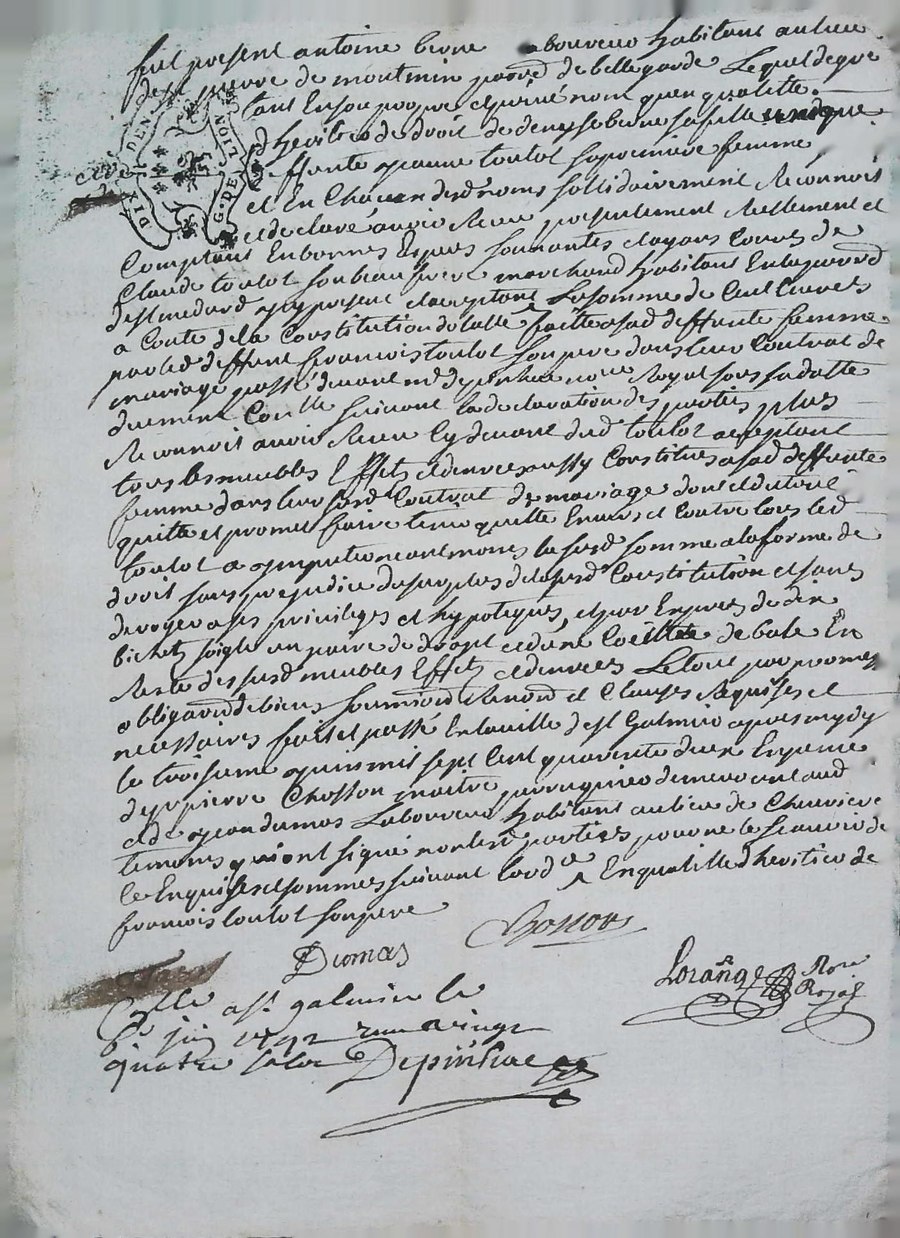 fut present antoine berne laboureur habitant au lieu
de pierre de montmin parr. de bellegarde Lequel de gré
tant En son propre et privé nom qu'en qualitté
d'heritier de droit de denyse berne sa fille unique
deffunte jeanne toulot sa premiere femme
et En Chacun desd noms sollidairement Reconnois
et declaré avoir Receu presentement Reellement et
Comptant En bonnes Especes sonnantes et ayant Cours de
Claude toulot son beau frere marchand habitant En la parr
de St medard icy present et acceptant La somme de Cent Livres
a Conte de la Constitution de lad faitte a sad deffunte femme
par led deffunt françois toulot son pere dans leur Contrat de
mariage passé devant me depinhac nore Royal sous sa datte
duement Conllé suivant la declaration des parties plus
Reconnoit avoir Receu Cy devant dud toulot acceptant
tous les meubles Effets et denrees aussy Constitués a sad deffunte
femme dans leur susd Contrat de mariage dont et du tout
quitte et promet faire tenir quitte Envers et Contre tous led
toulot a imputtion neantmoins la susd somme a la forme de
droit sans prejudice du surplus de la susd Constitution et sans
deroger a ses privileges et hypoteques, et par Exprès de dix
bichets soigle un paire de draps et d'une Coëtte de bale En
Reste des susd meubles Effets et denrees Le tout par promes
obligaon de biens soumissions Renons et Clauses Requises et
necessaires fait et passé En la ville de St Galmier apres mydy
le troisieme juin mil sept Cent quarante deux En presence
de sr pierre Chosson maitre perruquier demeurant aud
et de jean dumas Laboureur habitant au lieu de Cheuviere
temoins qui ont signé non lesd parties pour ne le scavoir de
ce Enquises et sommees suivant lord ce ^ En qualitté d'heritier de
françois toulot son pere
Chosson
Dumas
Lorange Nore
Royal
Conllé a St galmier le
juin 1742 Receu vingt
quatre sols Depinhac
DIX DEN
G. DE LION